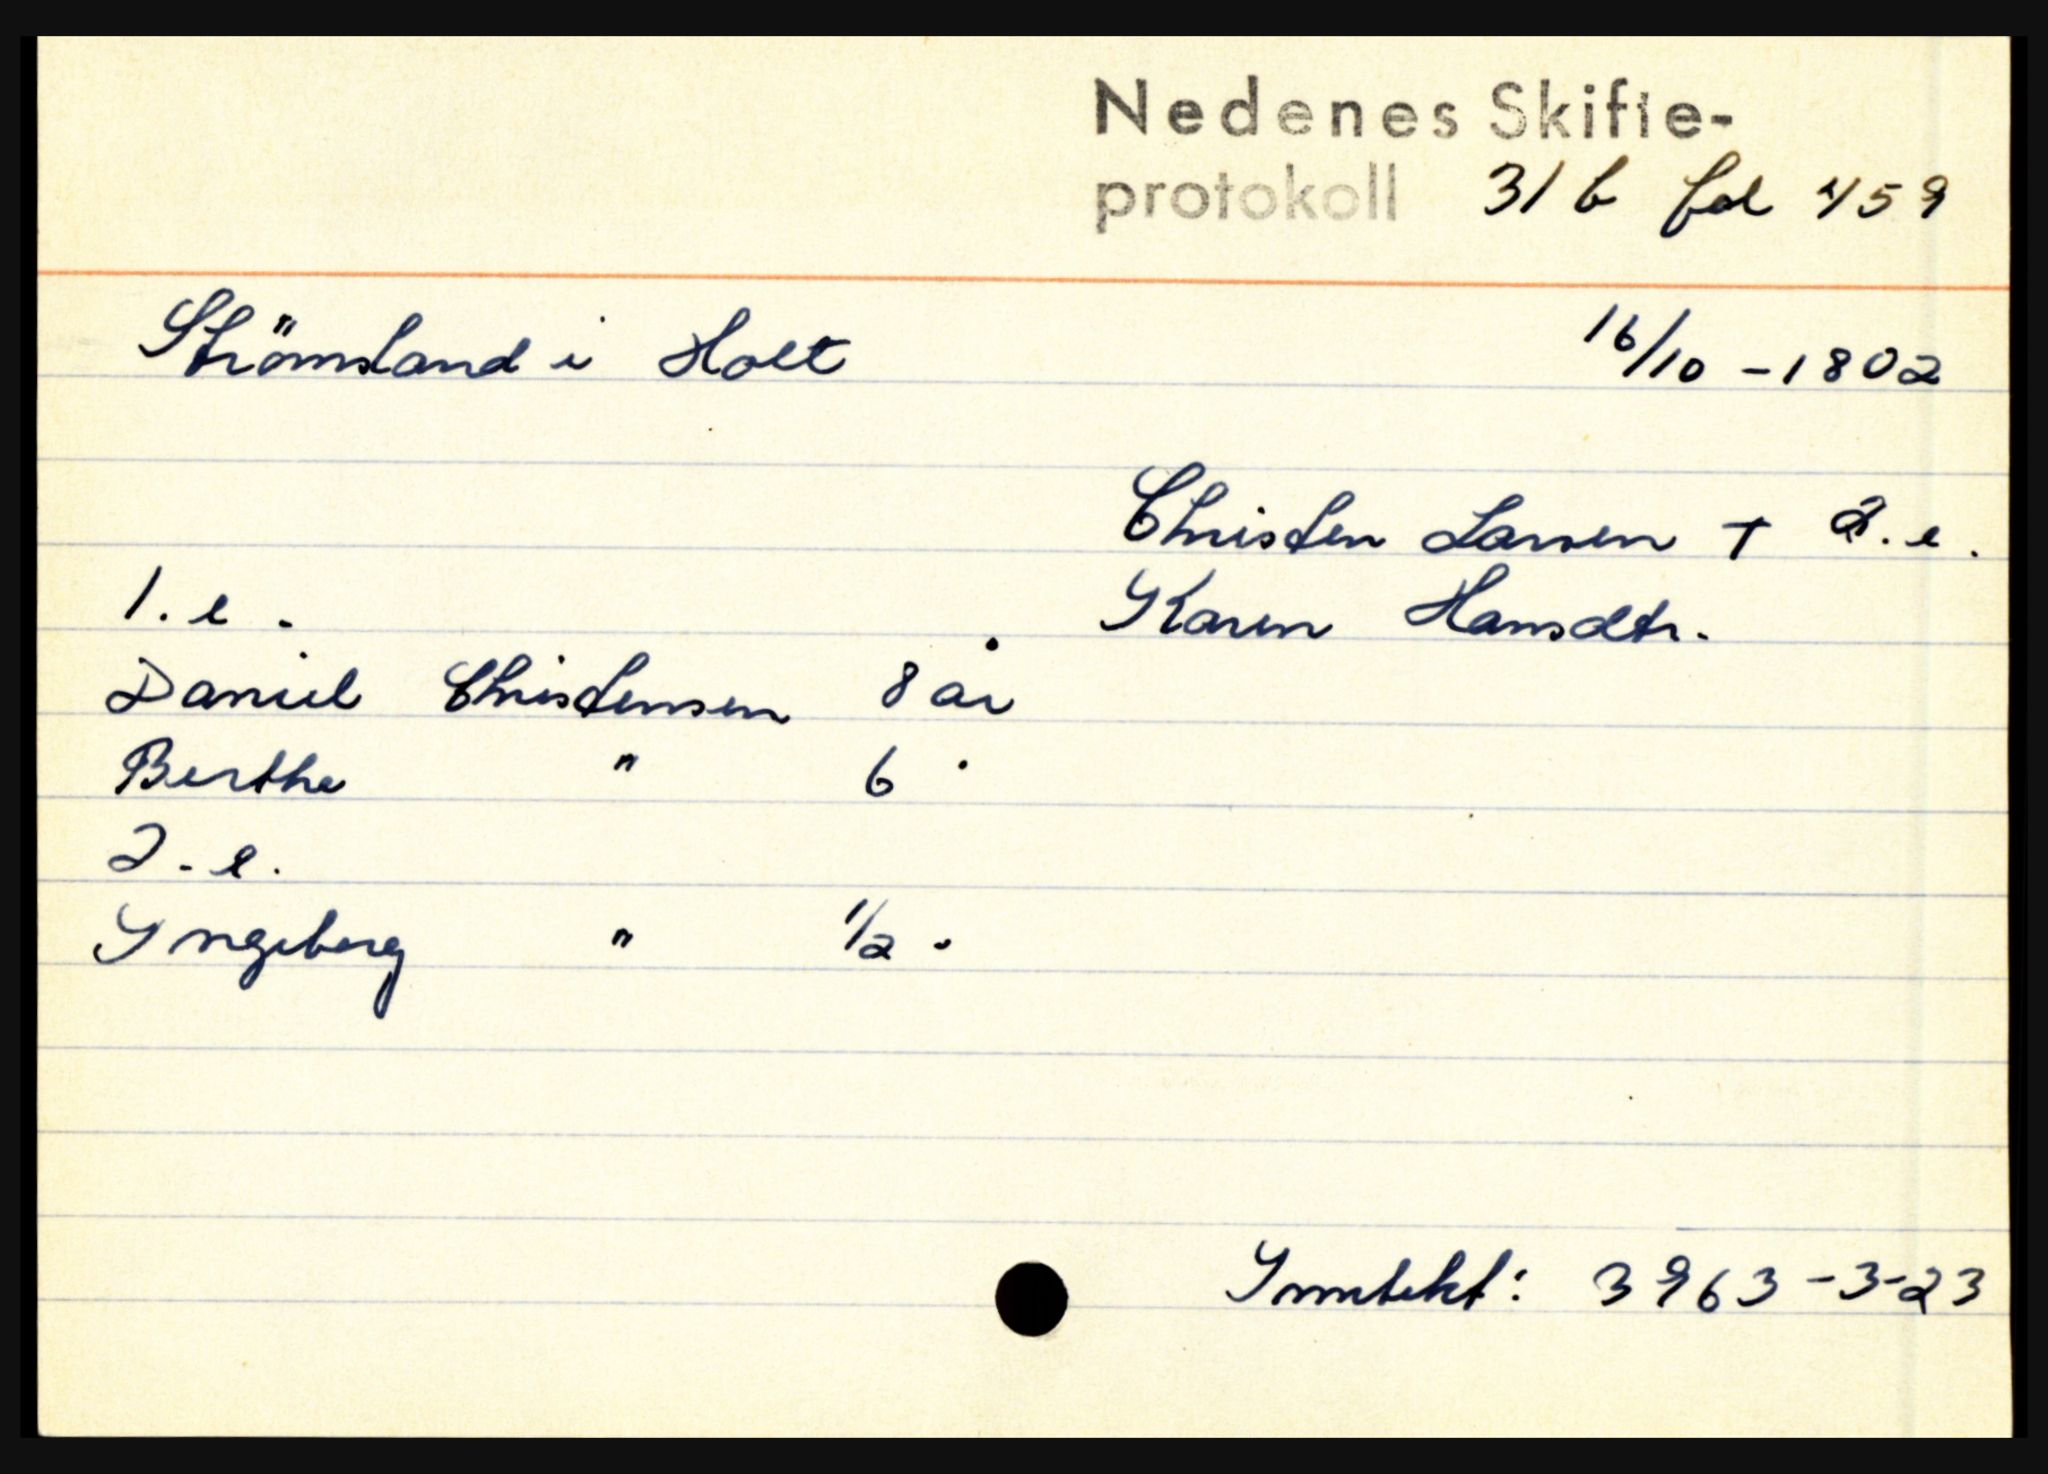 Nedenes Skifte-
protokoll 31 b fol 459
Strömsland i Holt 16/10 - 1802
Christen Larsen + 2. e.
1. e. Karen Hansdtr.
Daniel Christensen 8 år
Berthe " 6 .
2. e.
Yngeborg " 1/2 .
Inntekt: 3963-3-23